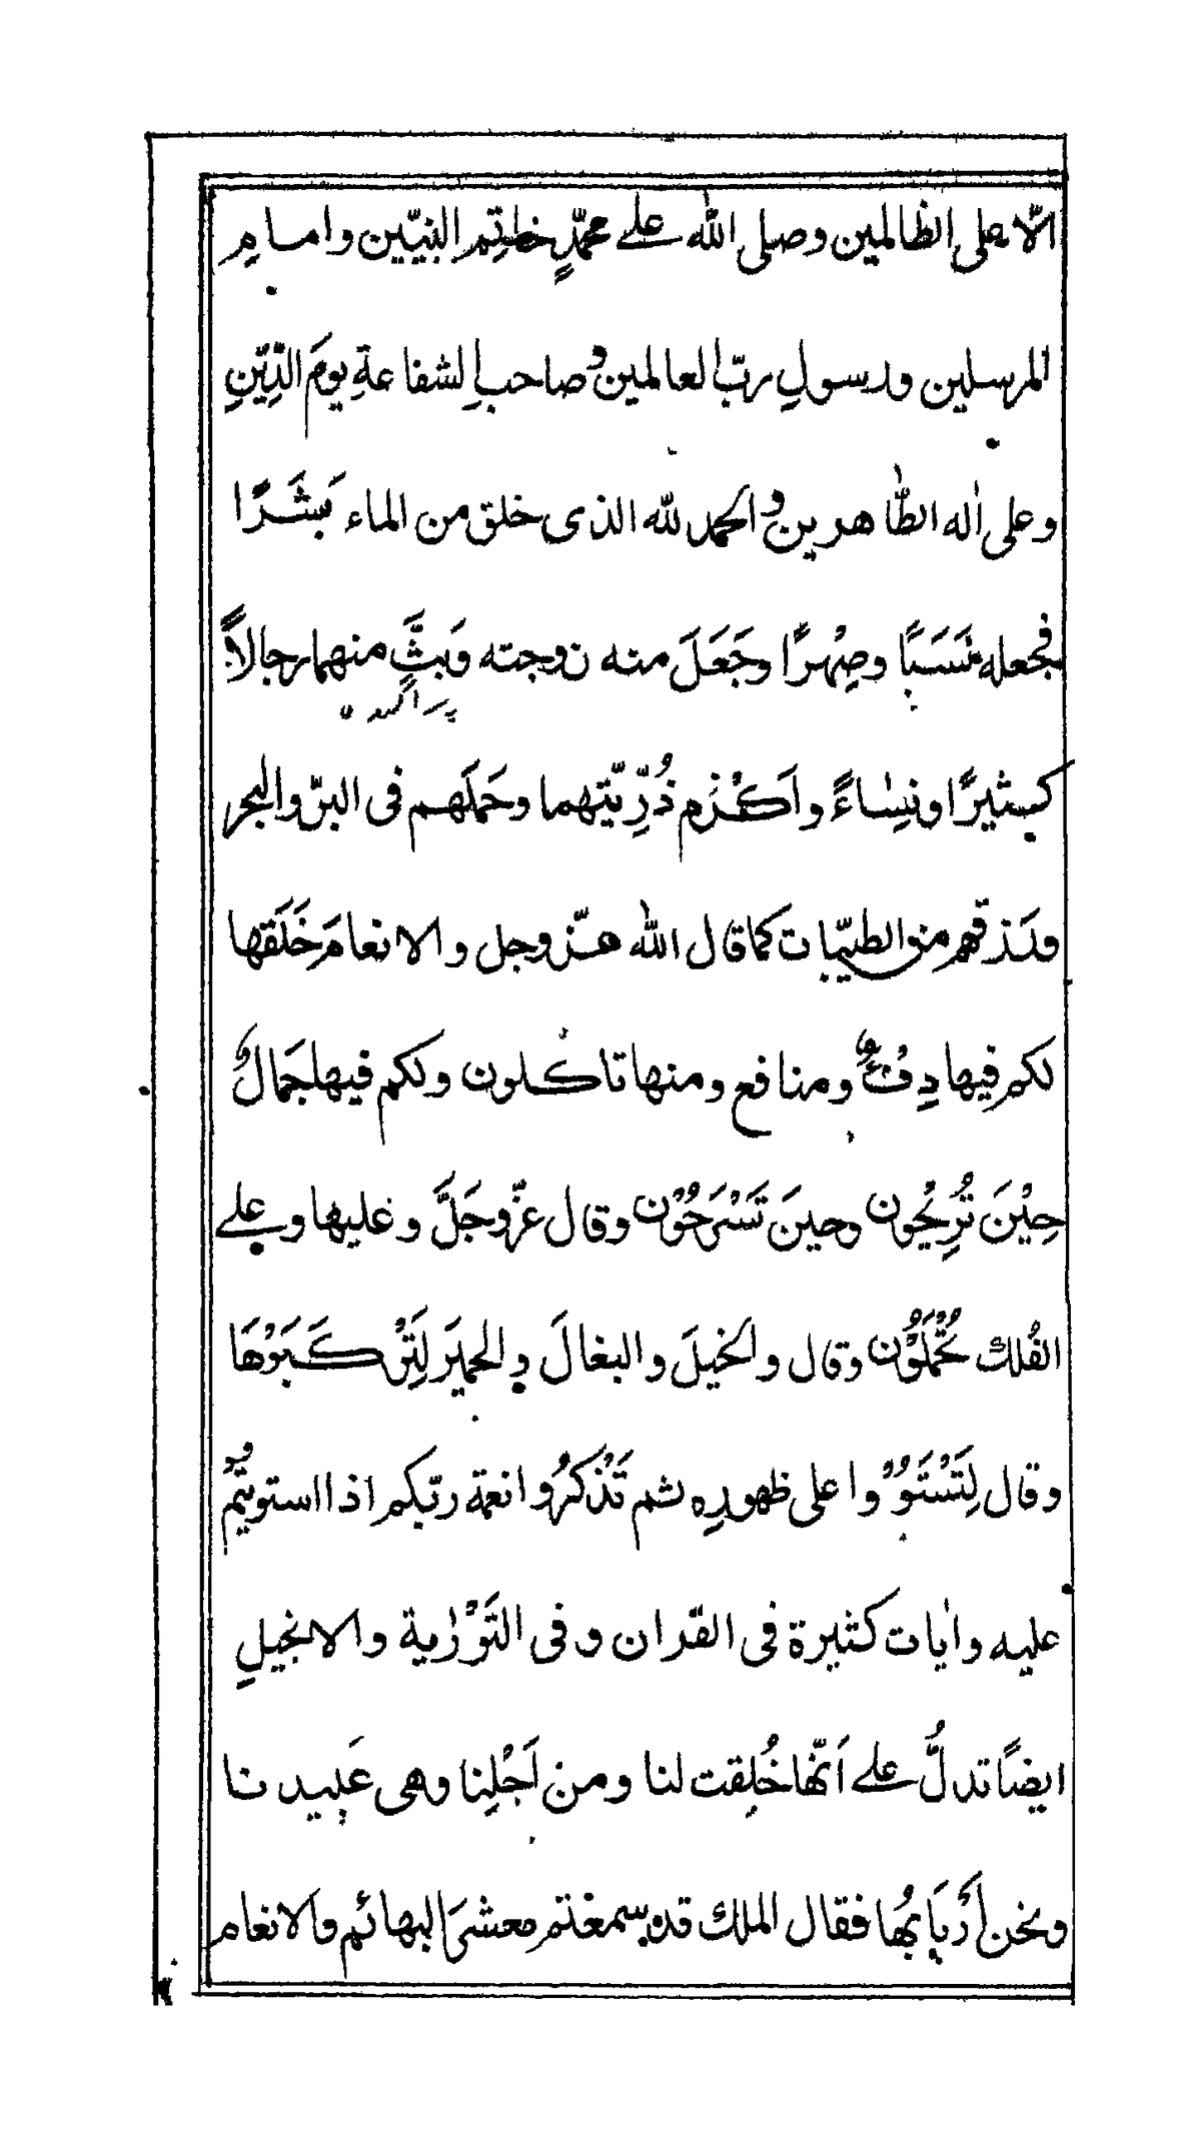 الّا على الظالمين وصلى الله على محمّدٍ خاتِم النبيّين وامامِ
المرسلين ورسولِ ربّ العالمين وصاحبِ الشفاعةِ يومَ الدِّيْنِ
وعلى اٰله الطّاهرين والحمد لله الذى خلق من الماء بَشَرًا
فجعله نَسَبًا وصِهْرًا وجَعَلَ منه زوجته وَبَثَّ منهما رجالاً
پراگندہ
كثيرًا ونِسٰاءً واَكْرَم ذُرِّيّتهما وحَمَلَهم فى البرّ والبحر
ورَزقهم من الطيّبات كما قال الله عزّ وجل والانعامَ خَلَقها
لكم فيها دِفْءٌ ومنافع ومنها تاكلون ولكم فيها جَمالٌ
حِيْنَ تُرِيْحُون وحينَ تَسْرَحُوْن وقال عزّ وجَلَّ وعليها وعلى
الفُلك تُحْمَلُوْن وقال والخيلَ والبغالَ والحميَر لِتَرْكَبَوْهَا
وقال لِتَسْتَوٗوا على ظهورِه ثم تَذْكرُوا نعمة ربّكم اذا استويتُمْ
عليه واٰيات كثيرة فى القراٰن وفى التَوْرٰية والانجيلِ
ايضًا تدلُّ على اَنّها خُلِقت لنا ومن اَجْلِنا وهى عَبِيدنا
ونحن اَرْبَابُها فقال الملك قد سمعتم معشرَ البهائم والانعام